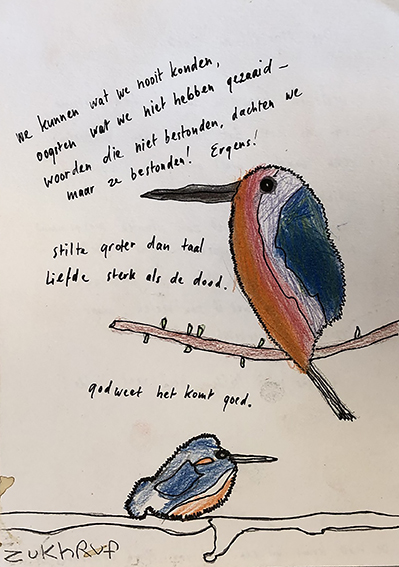 we kunnen wat we nooit konden,
oogsten wat we niet hebben gezaaid –
woorden die niet bestonden, dachten we
maar ze bestonden! Ergens!
stilte groter dan taal
liefde sterk als de dood.
god weet het komt goed.
ZUKHRUF